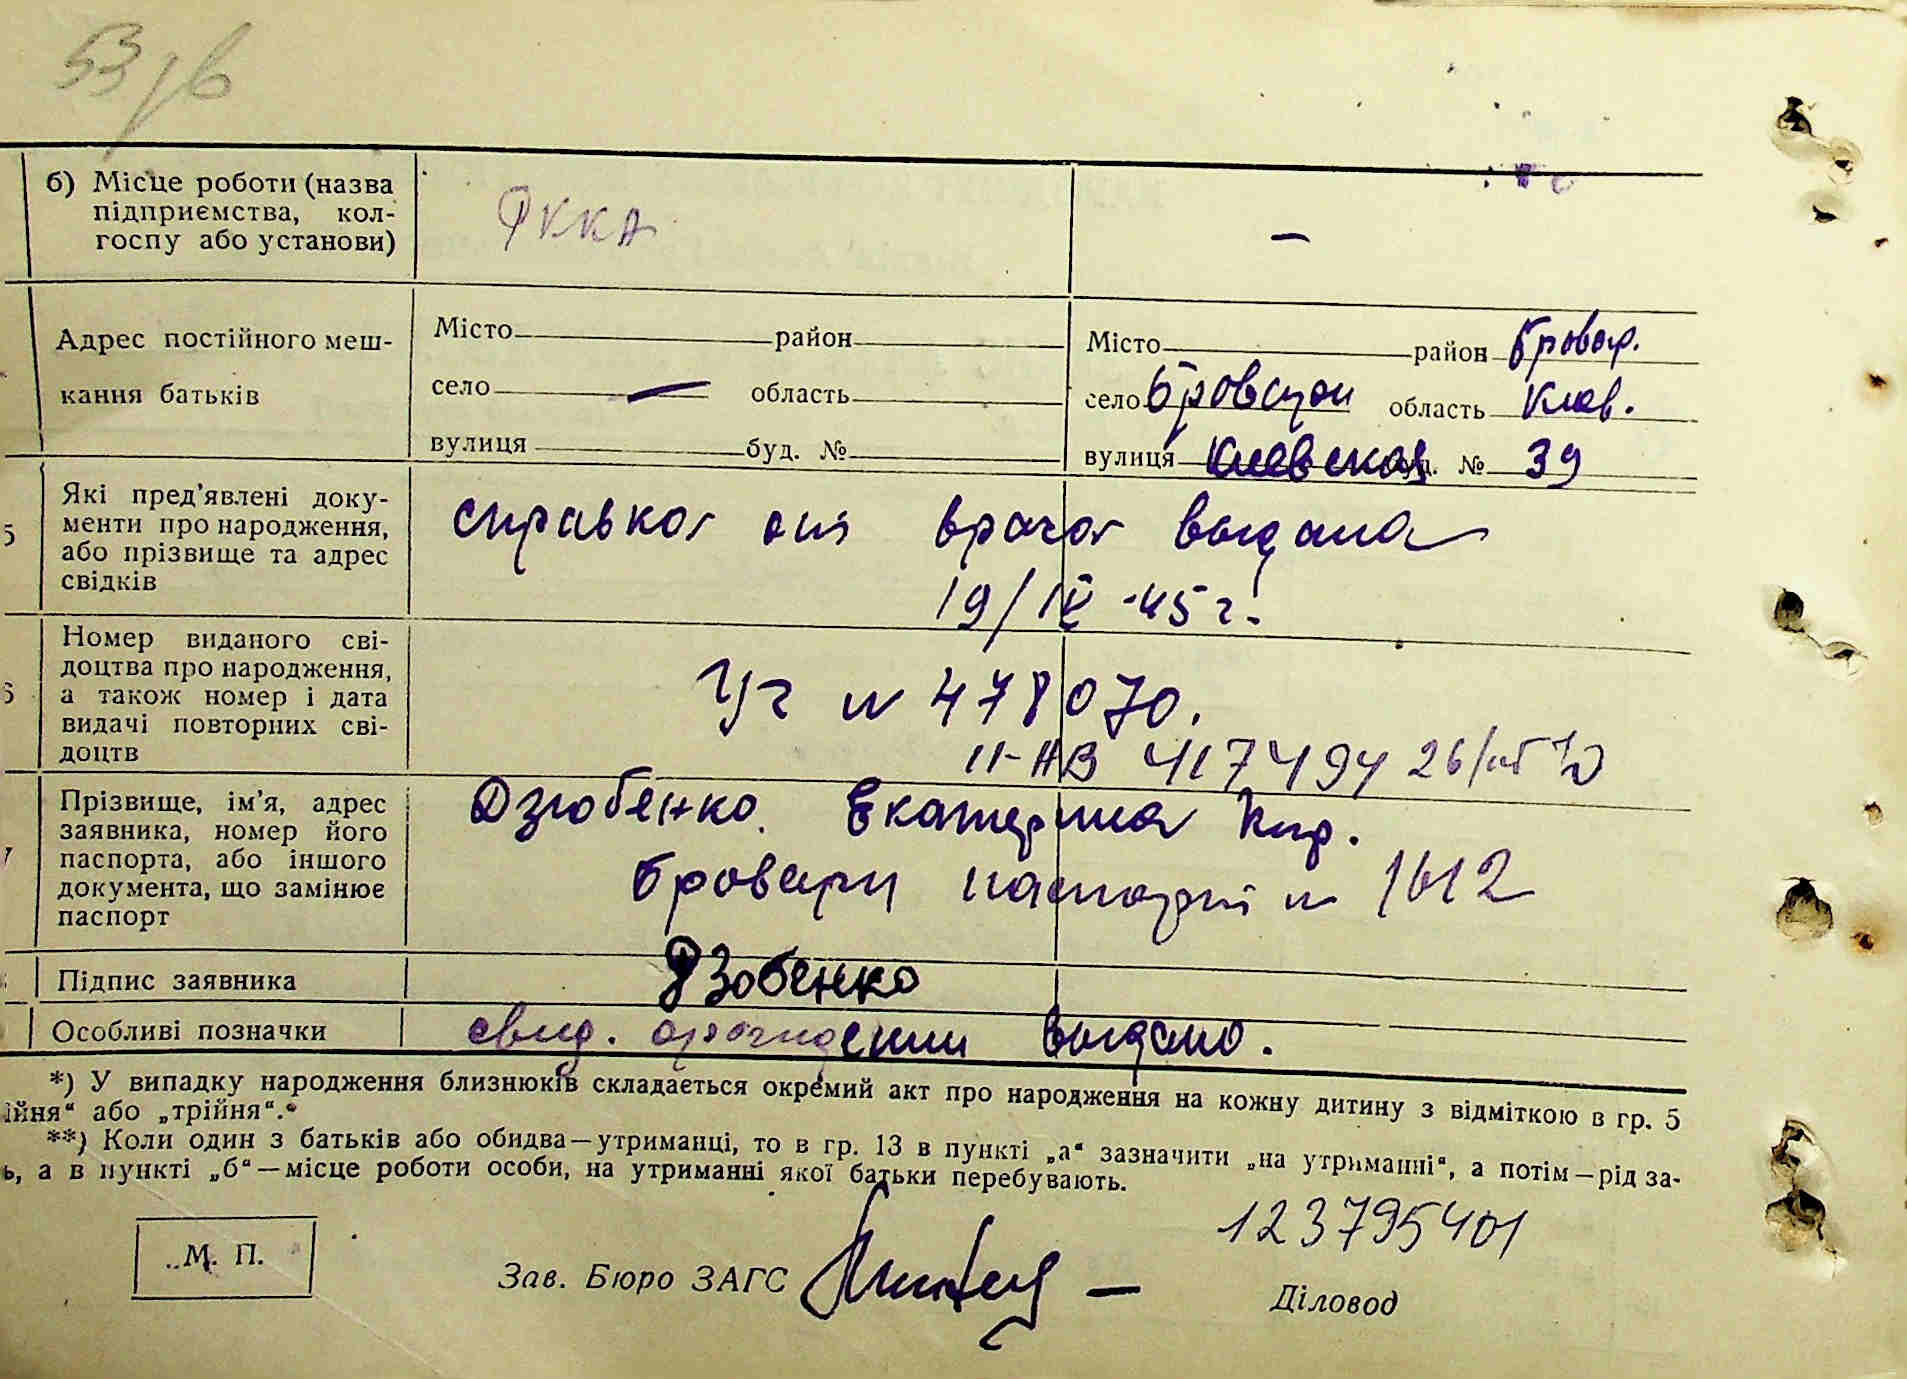 53
б) Місце роботи (назва
підприємства, кол-
госпу або установи)
РККА
—
Адрес постійного меш-
кання батьків
Місто район
село — область
вулиця буд. №
Місто район Бровар.
село Бровари область Киев.
вулиця Киевская буд. № 39
5
Які пред’явлені доку-
менти про народження,
або прізвище та адрес
свідків
справка от врача выдана
19/IV-45 г.
6
Номер виданого сві-
доцтва про народження,
а також номер і дата
видачі повторних сві-
доцтв
№ 478070.
II-НВ 417494 26/
7
Прізвище, ім’я, адрес
заявника, номер його
паспорта, або іншого
документа, що замінює
паспорт
Дзюбенко Екатерина
Бровари паспорт № 1612
Підпис заявника
Дзобенко
Особливі позначки
свид. о рождении выдано.
*) У випадку народження близнюків складається окремий акт про народження на кожну дитину з відміткою в гр. 5
ійня“ або „трійня“.
**) Коли один з батьків або обидва—утриманці, то в гр. 13 в пункті „а“ зазначити „на утриманні“, а потім—рід за-
ь, а в пункті „б“—місце роботи особи, на утриманні якої батьки перебувають.
М. П.
Зав. Бюро ЗАГС
123795401
Діловод